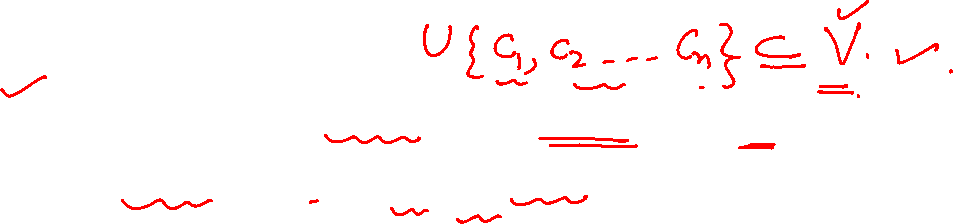 ∪{C₁, C₂ .... Cₙ} ⊆ V.